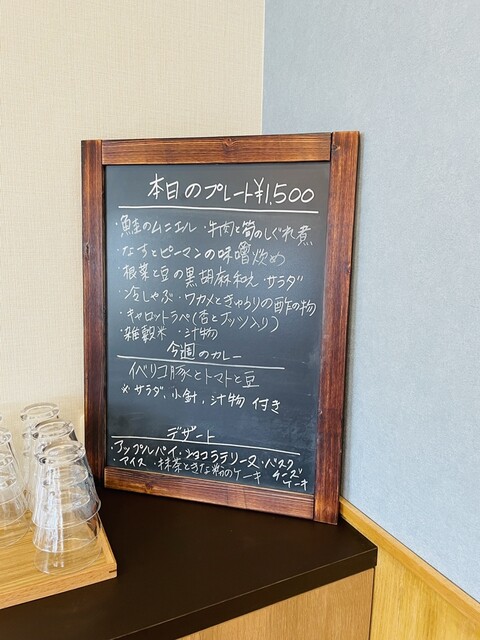 本日のプレート¥1,500
・鮭のムニエル ・牛肉と筍のしぐれ煮
・なすとピーマンの味噌炒め
・根菜と豆の黒胡麻和え ・サラダ
・冷しゃぶ ・ワカメときゅうりの酢の物
・キャロットラペ(杏とナッツ入り)
・雑穀米 ・汁物
今週のカレー
イベリコ豚とトマトと豆
※サラダ、小鉢、汁物 付き
デザート
・アップルパイ・ショコラテリーヌ・バスク
チーズ
ケーキ
アイス ・抹茶ときな粉のケーキ